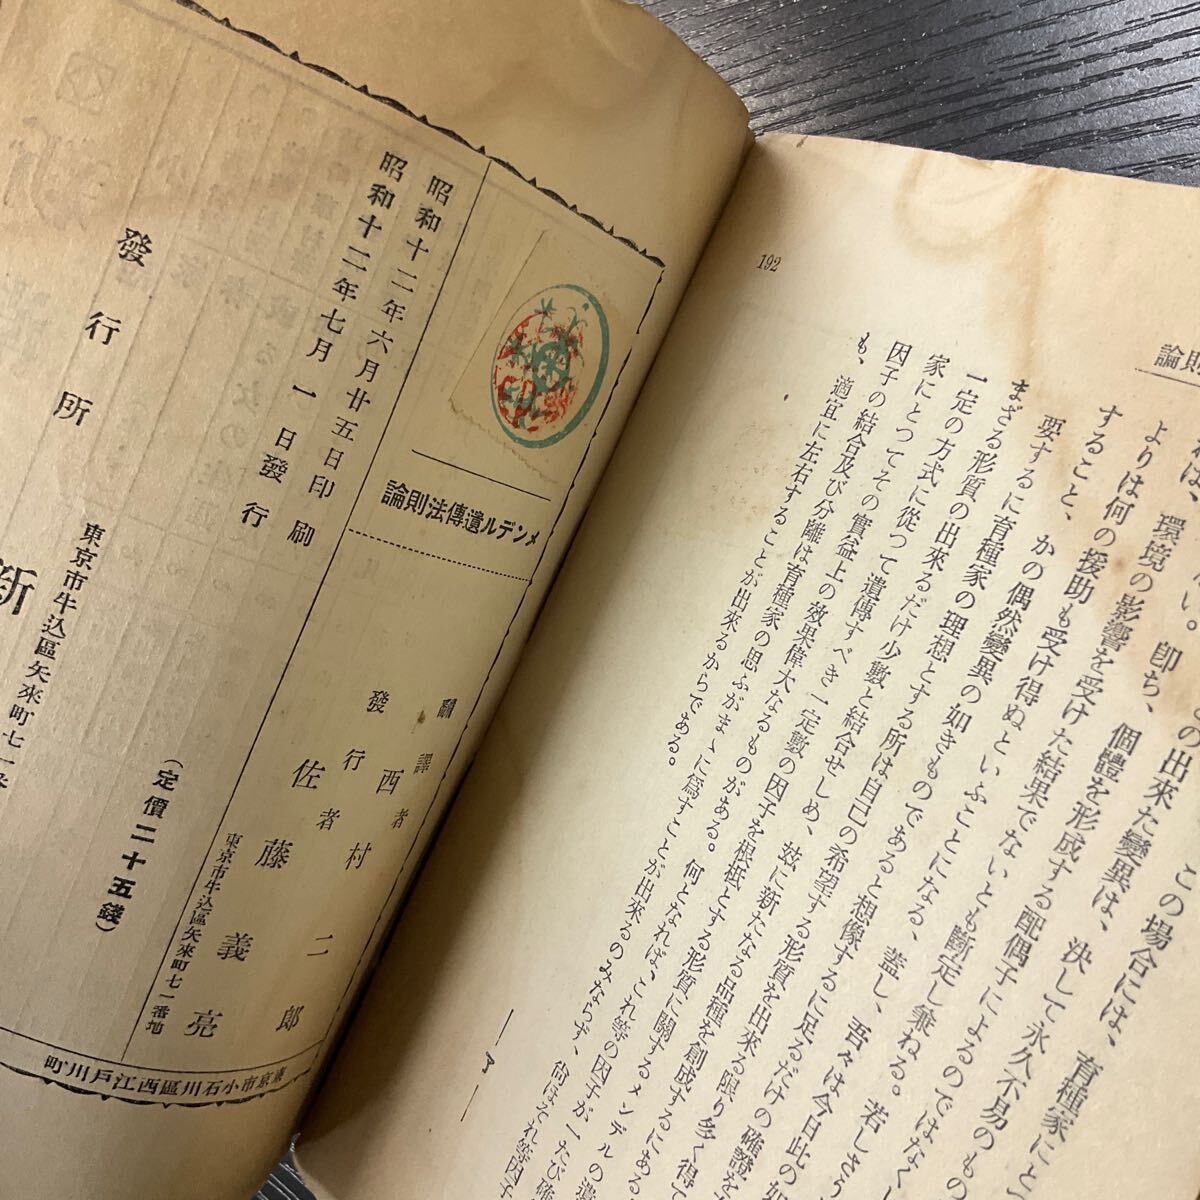 論則
れは、
い。卽ち、この場合には、育種家にと
よりは何の出來た變異は、決して永久不易のもの
環境の影響を受けた結果でないとも斷定し兼ねる。若しさう
すること、個體を形成する配偶子によるのではなくし
の援助も受け得ぬといふことになる、蓋し、吾々は今日此の如
要するに育種家の理想とする所は自己の希望する形質を出來る限り多く得て
まざる形質の出來るだけ少數と結合せしめ、玆に新たなる品種を創成するにある。
一定の方式に從つて遺傳すべき一定數の因子を根柢とする形質に關するメンデルの遺
家にとつてその實益上の效果偉大なるものがある。何となれば、これ等の因子が一たび確
因子の結合及び分離は育種家の思ふがまゝに爲すことが出來るのみならず、尙ほそれ等因子
も、適宜に左右することが出來るからである。
—了—
192
メンデル遺傳法則論
昭和十二年六月廿五日印刷
昭和十二年七月一日發行
飜譯者
西村二郎
發行者
佐藤義亮
東京市牛込區矢來町七一番地
(定價二十五錢)
東京市牛込區矢來町七一番
發行所
新
東京市小石川區西江戶川町